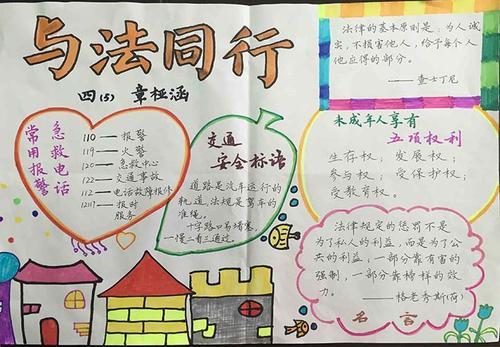 与法同行
四(5) 章桠涵
急救电话
常用报警
110——报警
119——火警
120——急救中心
122——交通事故
112——电话故障报修
12117——报时
服务
交通
安全标语
道路是汽车运行的
轨道,法规是驾车的
准绳。
十字路口易堵塞,
一慢二看三通过。
法律的基本原则是:为人诚
实,不损害他人,给予每个人
他应得的部分。
——查士丁尼
未成年人享有
五项权利
生存权;发展权;
参与权;受保护权;
受教育权。
法律规定的惩罚不是
为了私人的利益,而是为了公
共的利益;一部分靠有害的
强制,一部分靠榜样的效
力。
——格老秀斯(荷)
名言